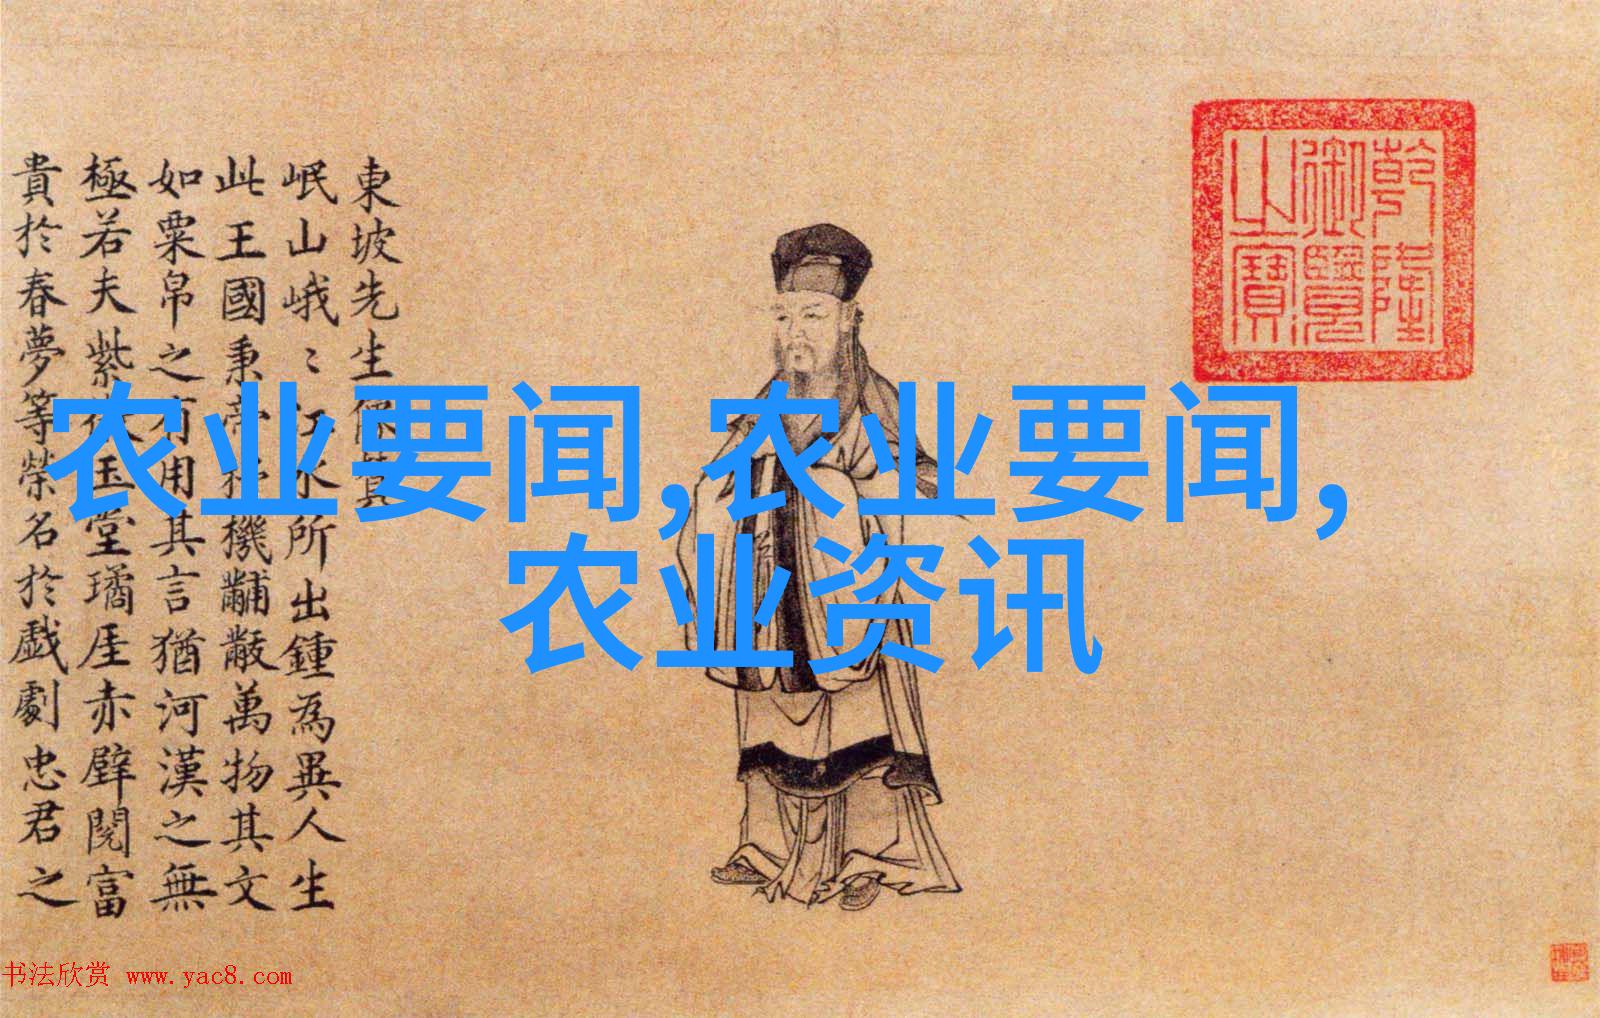 農业要闻,农业要闻,
农业资讯
乾隆
御覽
之寶
東坡先生
岷山峨〻江水所出鍾為異人生
此王國秉帝機黼黻萬物其文
如粟帛之有用其言猶河漢之無
極若夫紫玉堂璚厓赤壁閱富
貴於春夢等榮名於戲劇忠君之
书法欣赏 www.yac8.com